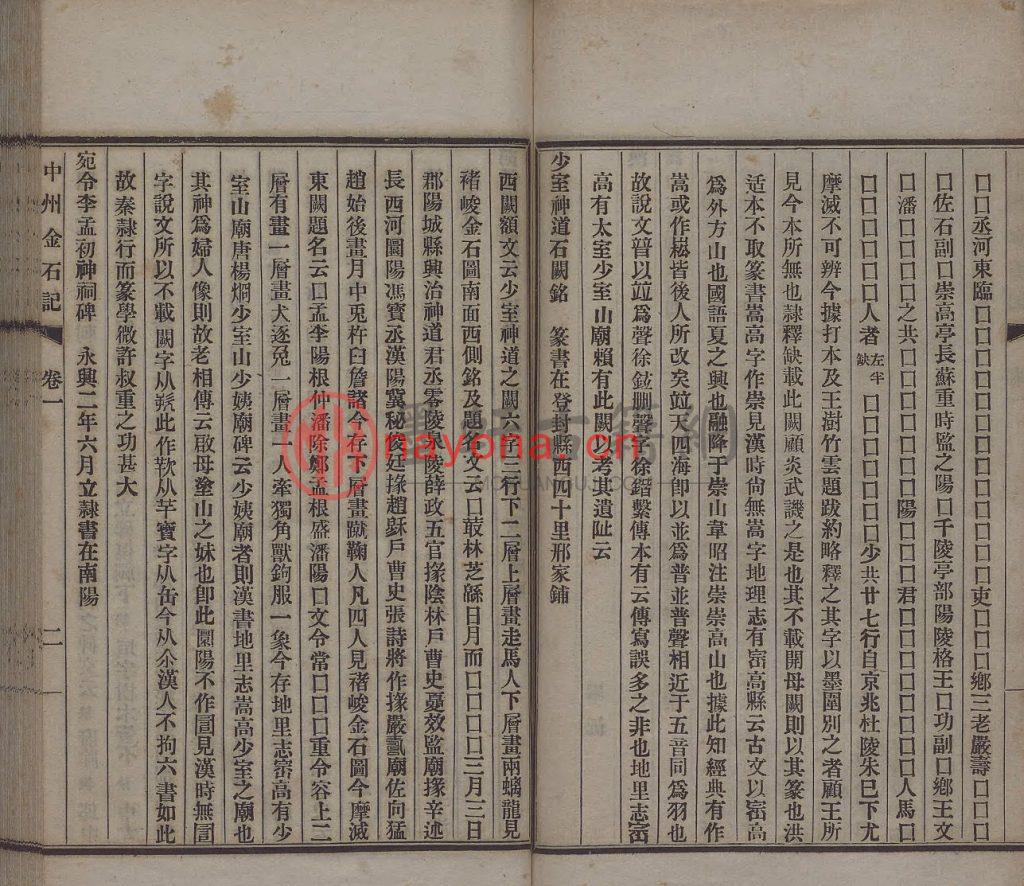 口口丞河東臨口口口口口口口口口口口口口吏口口口鄉三老嚴壽口口口
口佐石副口崇高亭長蘇重時監之陽口千陵亭部陽陵格王口功副口口鄉王文
口潘口口口口之共口口口口口口口陽口口口口君口口口口口口人馬口
口口口口口口口人者左半缺口口口口口口口少共廿七行自京兆杜陵朱已下尤
摩滅不可辨今據打本及王澍竹雲題跋約略釋之其字以墨圍別之者顧王所
見今本所無也隸釋缺載此闕顧炎武譏之是也其不載開母闕則以其篆也洪
适本不取篆書嵩高字作崇見漢時尙無嵩字地理志有崈高縣云古文以崈高
爲外方山也國語夏之興也融降于崇山韋昭注崇崇高山也據此知經典有作
嵩或作崧皆後人所改矣竝天四海卽以並爲普並普聲相近于五音同爲羽也
故說文暜以竝爲聲徐鉉删聲字徐鍇繫傳本有云傳寫誤多之非也地里志崈
高有太室少室山廟賴有此闕以考其遺阯云
少室神道石闕銘 篆書在登封縣西四十里邢家鋪
西闕額文云少室神道之闕六字三行下二層上層畫走馬人下層畫兩螭龍見
褚峻金石圖南面西側銘及題名文云口菆林芝繇日月而口口口口三月三日
郡陽城縣興治神道君丞零陵泉陵薛政五官掾陰林戶曹史夏效監廟掾辛述
長西河圜陽馮寶丞漢陽冀秘俊廷掾趙穌戶曹史張詩將作掾嚴壽廟佐向猛
趙始後畫月中兎杵臼詹諸今存下層畫蹴鞠人凡四人見褚峻金石圖今摩滅
東闕題名云口孟李陽根仲潘除鄭孟根盛潘陽口文令常口口口重令容上二
層有畫一層畫犬逐兔一層畫一人牽獨角獸鉤服一象今存地里志崈高有少
室山廟唐楊烱少室山少姨廟碑云少姨廟者則漢書地里志嵩高少室之廟也
其神爲婦人像則故老相傳云啟母塗山之妹也卽此圜陽不作圁見漢時無圁
字說文所以不載闕字从此作从芉寶字从缶今从尒漢人不拘六書如此
故秦隸行而篆學微許叔重之功甚大
宛令李孟初神祠碑 永興二年六月立隸書在南陽
中州金石記 卷一 二
nayona.cn